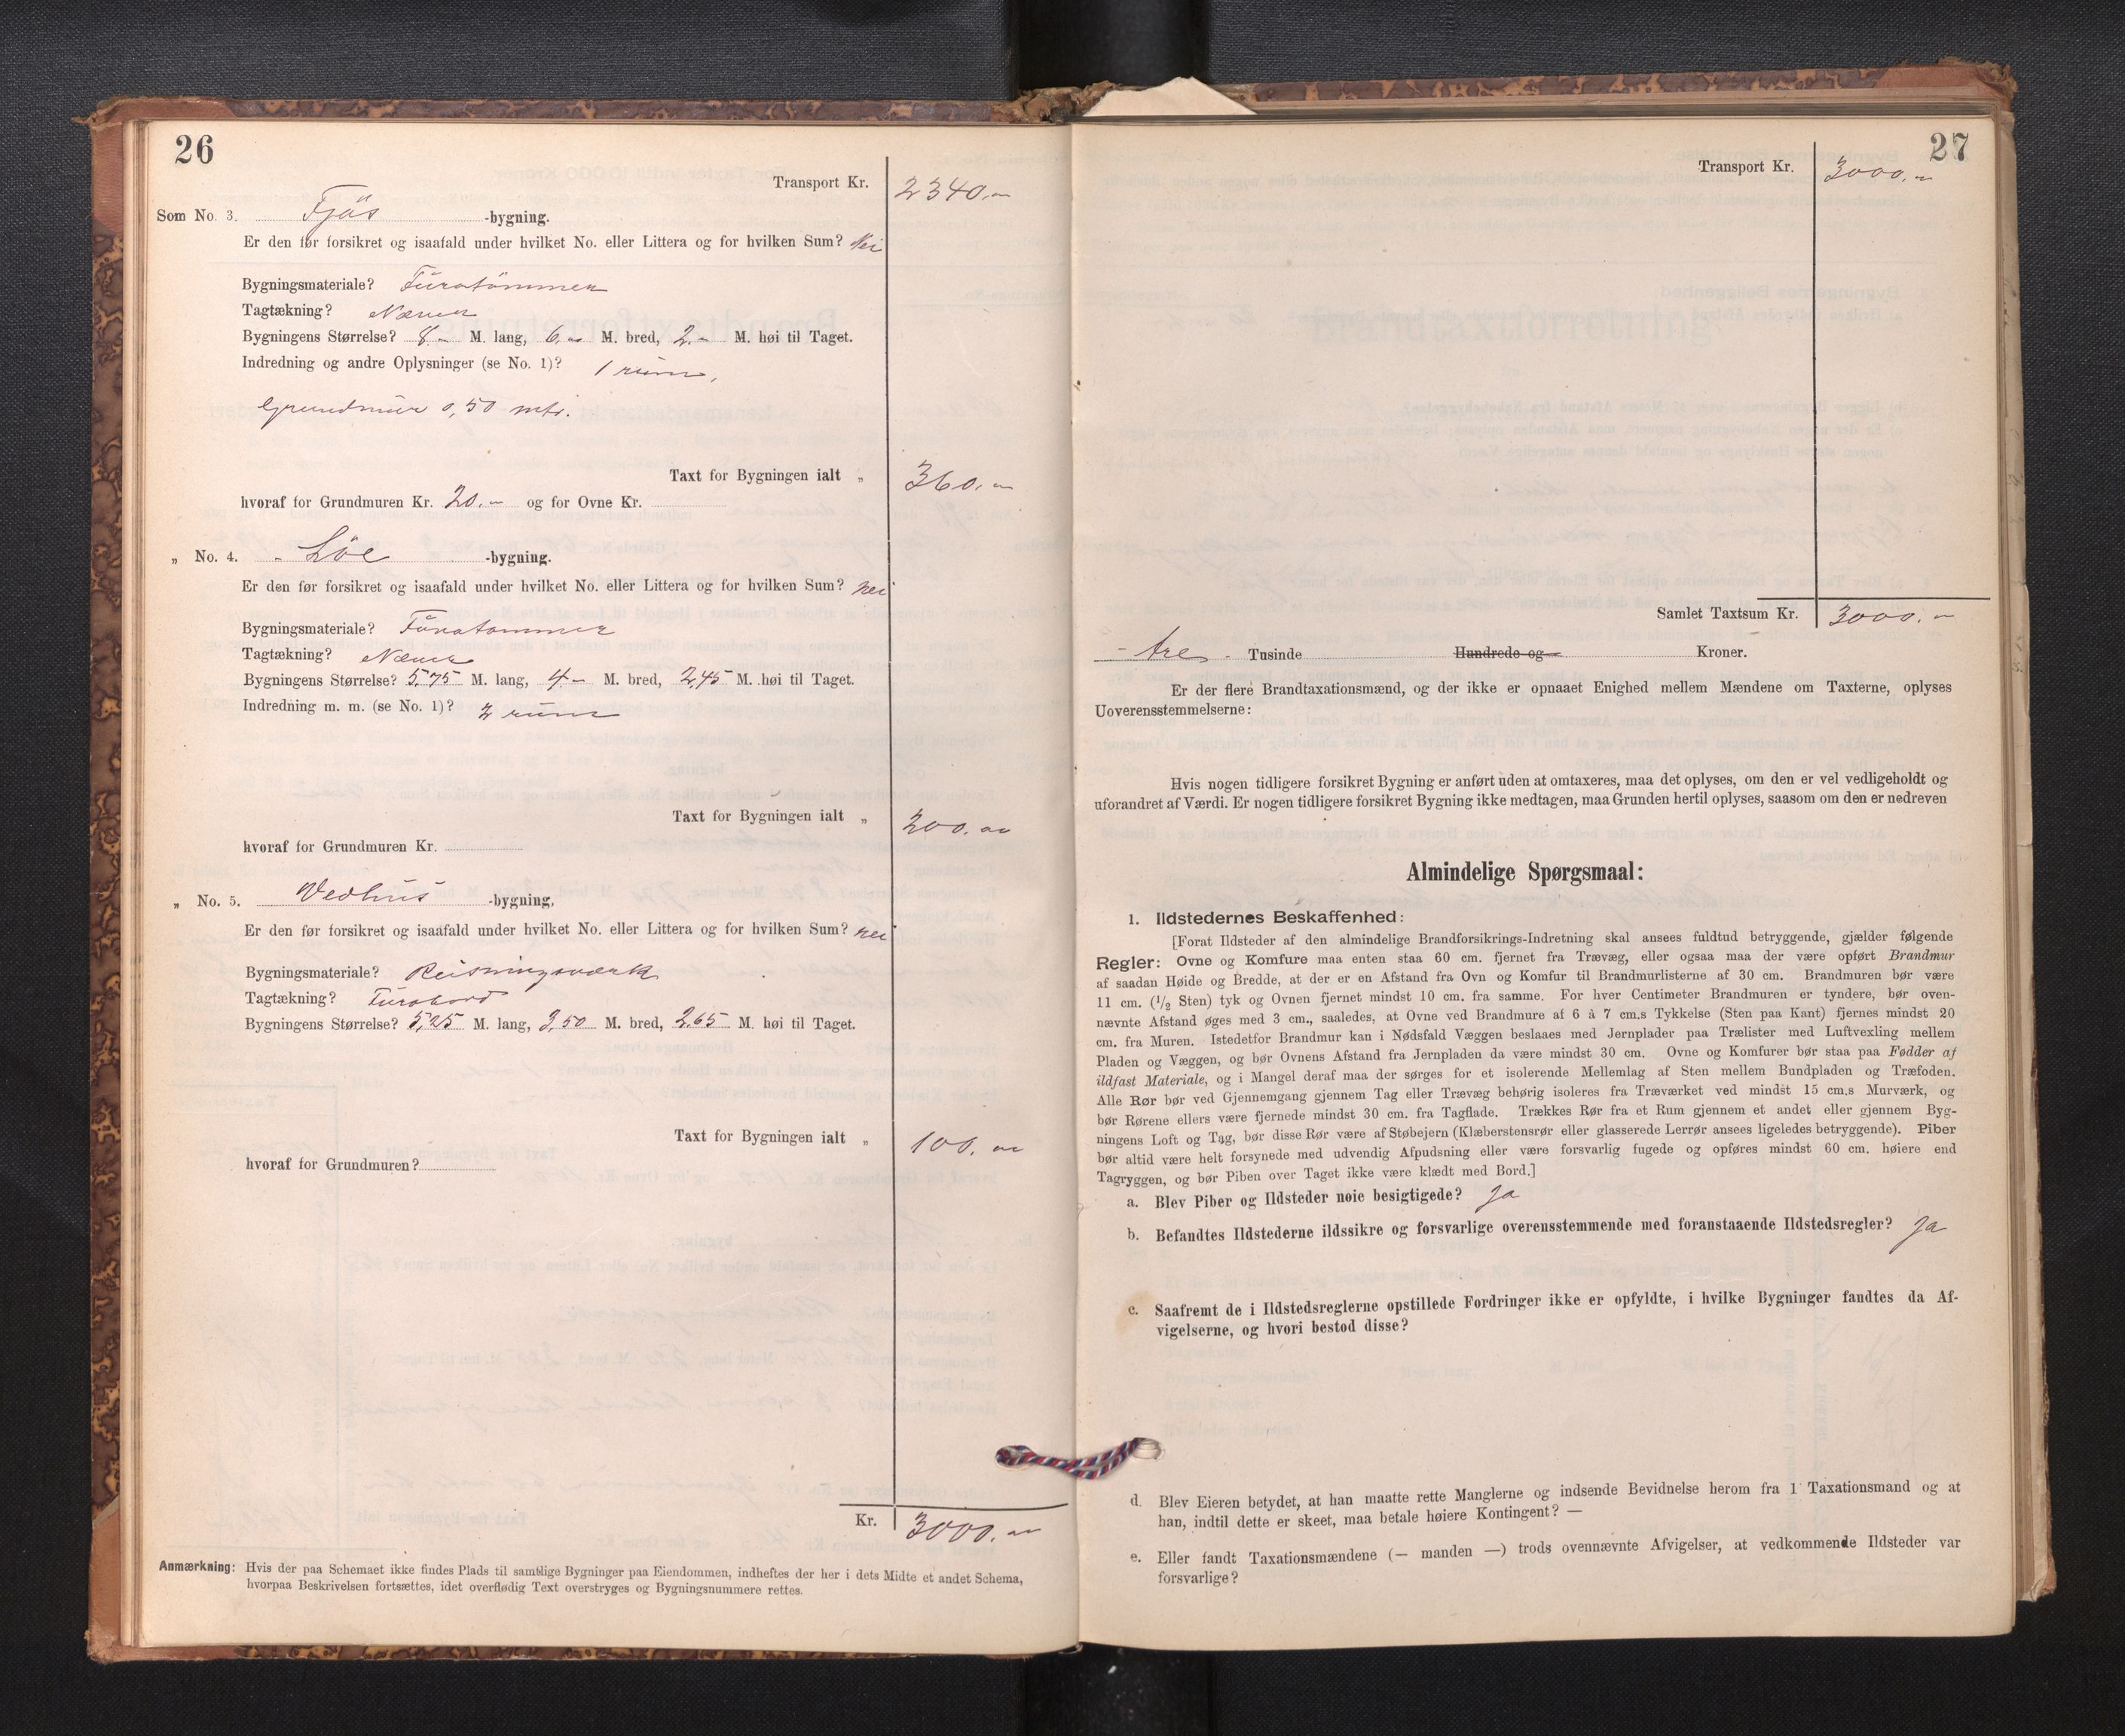 26
Transport Kr. 2340.-
Som No. 3. Fjös -bygning.
Er den før forsikret og isaafald under hvilket No. eller Littera og for hvilken Sum? Nei
Bygningsmateriale? Furutömmer
Tagtækning? Næver
Bygningens Størrelse? 8 - M. lang, 6.- M. bred, 2.- M. høi til Taget.
Indredning og andre Oplysninger (se No. 1)? 1 rum,
Grundmur 0,50 mtr.
Taxt for Bygningen ialt „ 360.-
hvoraf for Grundmuren Kr. 20.- og for Ovne Kr.
„ No. 4. - Löe -bygning.
Er den før forsikret og isaafald under hvilket No. eller Littera og for hvilken Sum? nei
Bygningsmateriale? Furutömmer
Tagtækning? Næver
Bygningens Størrelse? 5,75 M. lang, 4.- M. bred, 2,45 M. høi til Taget.
Indredning m. m. (se No. 1)? 2 rum
Taxt for Bygningen ialt „ 200.-
hvoraf for Grundmuren Kr.
„ No. 5. Vedhus -bygning,
Er den før forsikret og isaafald under hvilket No. eller Littera og for hvilken Sum? nei
Bygningsmateriale? Reisningsværk
Tagtækning? Furubord
Bygningens Størrelse? 5,25 M. lang, 3,50 M. bred, 2,65 M. høi til Taget.
Taxt for Bygningen ialt „ 100.-
hvoraf for Grundmuren?
Kr. 3000.-
Anmærkning: Hvis der paa Schemaet ikke findes Plads til samtlige Bygninger paa Eiendommen, indheftes der her i dets Midte et andet Schema,
hvorpaa Beskrivelsen fortsættes, idet overflødig Text overstryges og Bygningsnummere rettes.
27
Transport Kr. 3000.-
Samlet Taxtsum Kr. 3000.-
- tre - Tusinde Hundrede og Kroner.
Er der flere Brandtaxationsmænd, og der ikke er opnaaet Enighed mellem Mændene om Taxterne, oplyses
Uoverensstemmelserne:
Hvis nogen tidligere forsikret Bygning er anført uden at omtaxeres, maa det oplyses, om den er vel vedligeholdt og
uforandret af Værdi. Er nogen tidligere forsikret Bygning ikke medtagen, maa Grunden hertil oplyses, saasom om den er nedreven
Almindelige Spørgsmaal:
1. Ildstedernes Beskaffenhed:
[Forat Ildsteder af den almindelige Brandforsikrings-Indretning skal ansees fuldtud betryggende, gjælder følgende
Regler: Ovne og Komfure maa enten staa 60 cm. fjernet fra Trævæg, eller ogsaa maa der være opført Brandmur
af saadan Høide og Bredde, at der er en Afstand fra Ovn og Komfur til Brandmurlisterne af 30 cm. Brandmuren bør være
11 cm. (1/2 Sten) tyk og Ovnen fjernet mindst 10 cm. fra samme. For hver Centimeter Brandmuren er tyndere, bør oven-
nævnte Afstand øges med 3 cm., saaledes, at Ovne ved Brandmure af 6 à 7 cm.s Tykkelse (Sten paa Kant) fjernes mindst 20
cm. fra Muren. Istedetfor Brandmur kan i Nødsfald Væggen beslaaes med Jernplader paa Trælister med Luftvexling mellem
Pladen og Væggen, og bør Ovnens Afstand fra Jernpladen da være mindst 30 cm. Ovne og Komfurer bør staa paa Fødder af
ildfast Materiale, og i Mangel deraf maa der sørges for et isolerende Mellemlag af Sten mellem Bundpladen og Træfoden.
Alle Rør bør ved Gjennemgang gjennem Tag eller Trævæg behørig isoleres fra Træværket ved mindst 15 cm.s Murværk, og
bør Rørene ellers være fjernede mindst 30 cm. fra Tagflade. Trækkes Rør fra et Rum gjennem et andet eller gjennem Byg-
ningens Loft og Tag, bør disse Rør være af Støbejern (Klæberstensrør eller glasserede Lerrør ansees ligeledes betryggende). Piber
bør altid være helt forsynede med udvendig Afpudsning eller være forsvarlig fugede og opføres mindst 60 cm. høiere end
Tagryggen, og bør Piben over Taget ikke være klædt med Bord.]
a. Blev Piber og Ildsteder nøie besigtigede? Ja
b. Befandtes Ildstederne ildssikre og forsvarlige overensstemmende med foranstaaende Ildstedsregler? Ja
c. Saafremt de i Ildstedsreglerne opstillede Fordringer ikke er opfyldte, i hvilke Bygninger fandtes da Af-
vigelserne, og hvori bestod disse?
d. Blev Eieren betydet, at han maatte rette Manglerne og indsende Bevidnelse herom fra 1 Taxationsmand og at
han, indtil dette er skeet, maa betale høiere Kontingent? —
e. Eller fandt Taxationsmændene (— manden —) trods ovennævnte Afvigelser, at vedkommende Ildsteder var
forsvarlige?